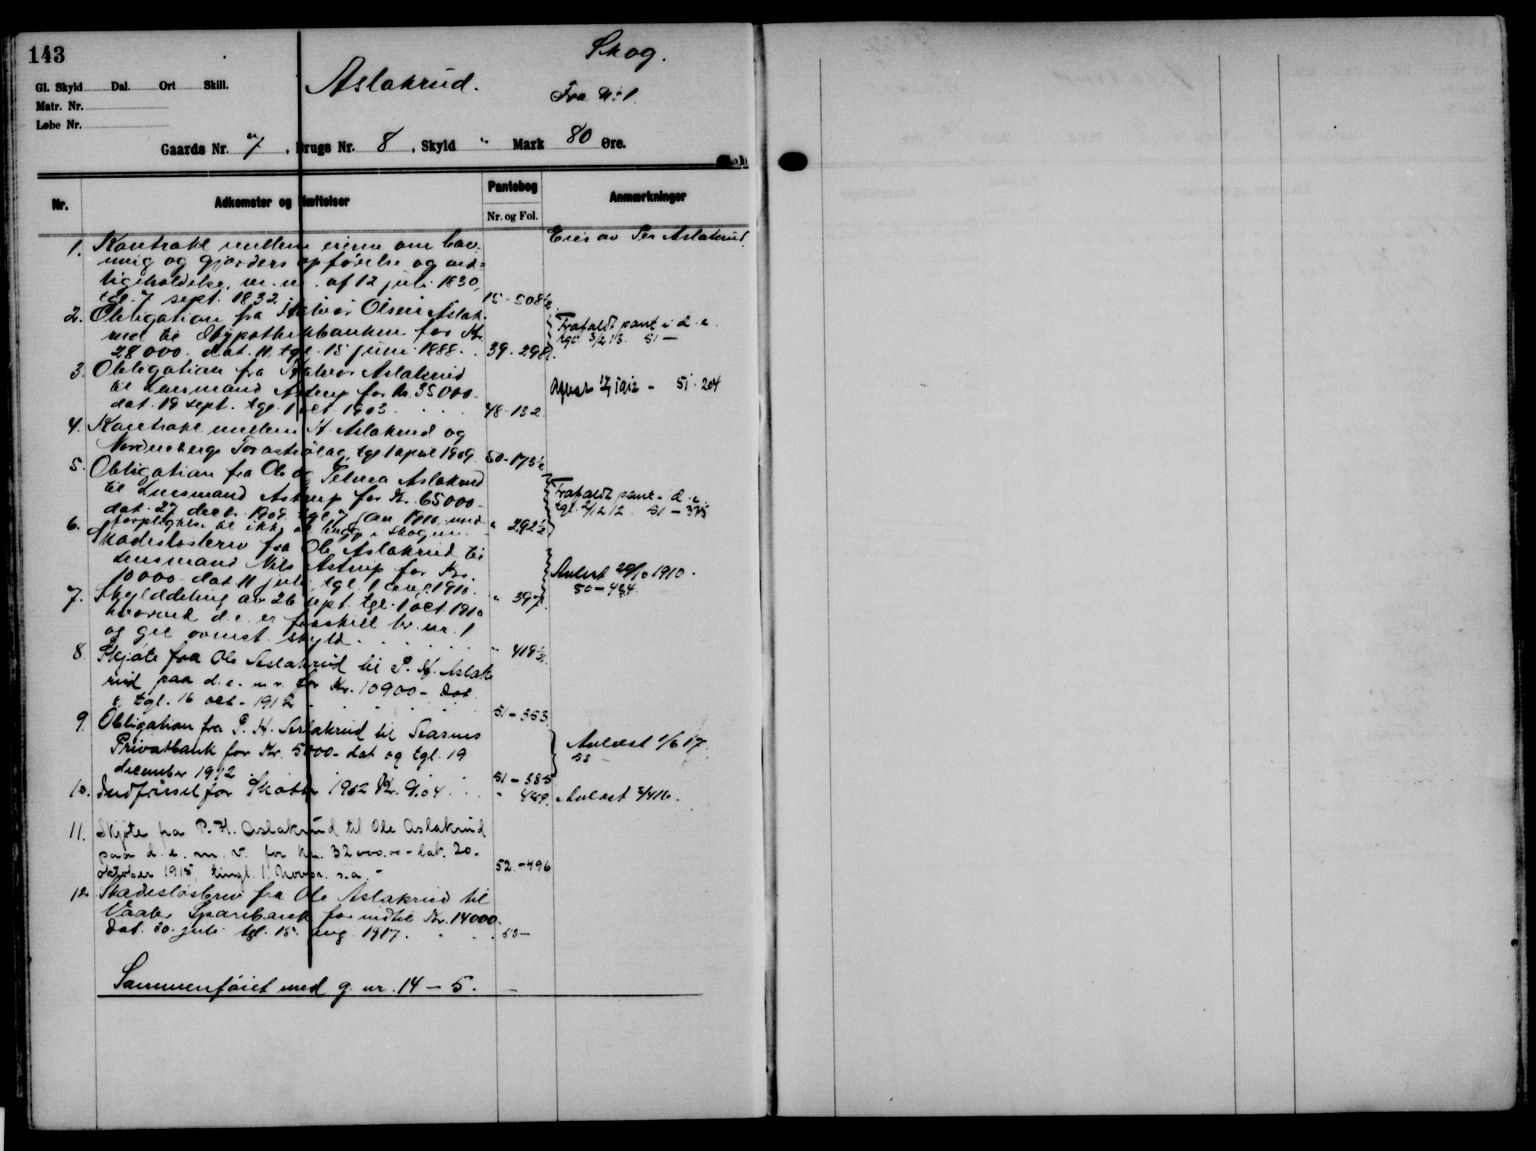 143
Skog.
Gl. Skyld Dal. Ort Skill.
Aslakrud.
Fra Nº 1.
Matr. Nr.
Løbe Nr.
Gaards Nr. 7, Brugs Nr. 8, Skyld " Mark 80 Øre.
Nr. Adkomster og Hæftelser Pantebog Anmærkninger
Nr. og Fol.
1. Kontrakt mellem eierne om
og gjorders opførelse og ved= Eies av Per Aslakrud.
ligeholdelse, m. m. af 12 juli 1830,
tgl. 7 sept. 1832 15-508½
2. Obligation fra Halvor Olsen Aslak-
rud til Hypothekbanken for Kr. Frafaldt pant i d. e.
28000. dat. 11. tgl. 15 juni 1888. 39-298. tgl. 3/2 13. 51 —
3. Obligation fra Halvor Aslakrud
til Lensmand Astrup for Kr. 35000.- 1912 - 51-204
dat. 19 sept. tgl. 1 oct. 1903. 48-132.
4. Kontrakt mellem H. Aslakrud og
tgl 1 april 1909. 50-173½
5. Obligation fra Ole og Aslakrud
til Lensmand Astrup for Kr. 65000.- Frafaldt pant i d. e.
dat. 27 decb. 1909. tgl. 7 jan 1910, med tgl. 2/12 12. 51 — 375
forpligtelse til ikke at hugge i skogen. " 292½
6. Skadesløsbrev fra Ole Aslakrud til
Lensmand Nils Astrup for Kr. Avlest 29/10 1910.
10000.- dat 11 juli tgl 1 aug. 1910. 50-434.
7. Skylddeling av 26 sept. tgl. 1 oct 1910 " 397.
hvorved d. e. er fraskilt br. nr. 1
og git ovenst. skyld. " 419½
8. Skjøte fra Ole Aslakrud til P. H. Aslak-
rud paa d. e. m. v. for Kr. 10900.- dat.
& tgl. 16 oct. 1912 51-353.
9. Obligation fra P. H. Aslakrud til Aasnes
Privatbank for Kr. 5000.- dat og tgl. 19 Avlæst 1/6 17.
december 1912 51-385 53 —
10. Indførsel for Skatter 1912 Kr. 9.04 " 449. Avlæst 3/4 16.
11. Skjøte fra P. H. Aslakrud til Ole Aslakrud
paa d. e. m. v. for Kr. 32000.00 - dat. 20.
oktober 1915, tingl. 1. Novbr. s. a. - 52-496
12. Skadesløsbrev fra Ole Aslakrud til
Vaaler Sparebank for indtil Kr. 14000.-
Dat. 30. juli tgl. 15. aug. 1917. 53-
Sammenføiet med g. nr. 14 — 5. —